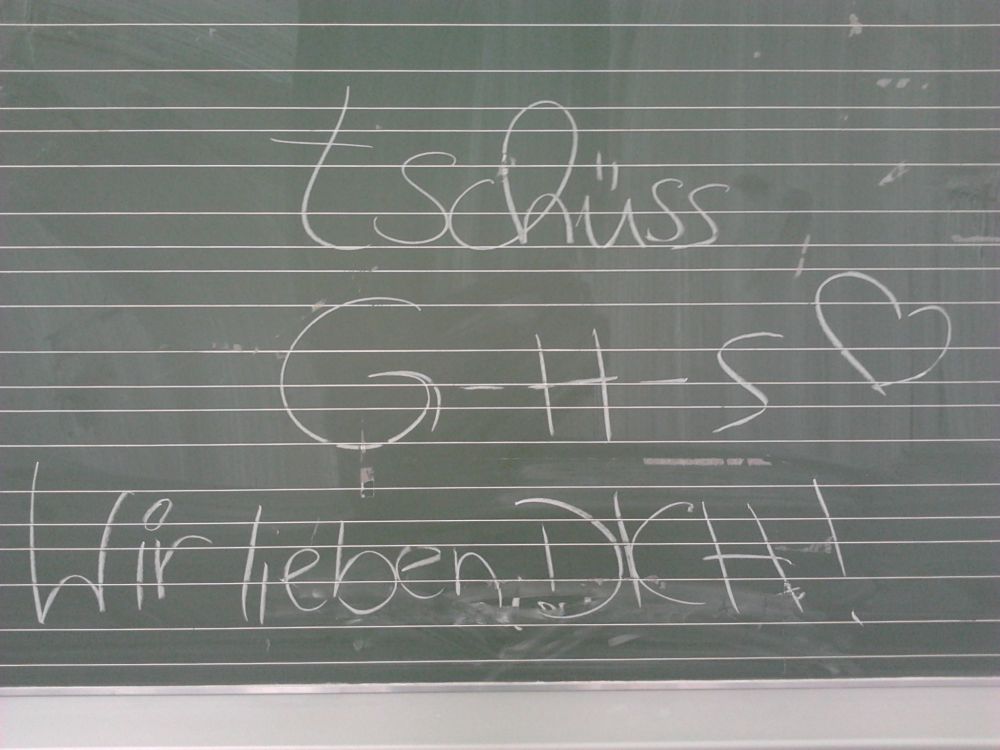 tschüss
G-H-S ♡
Wir lieben DICH!